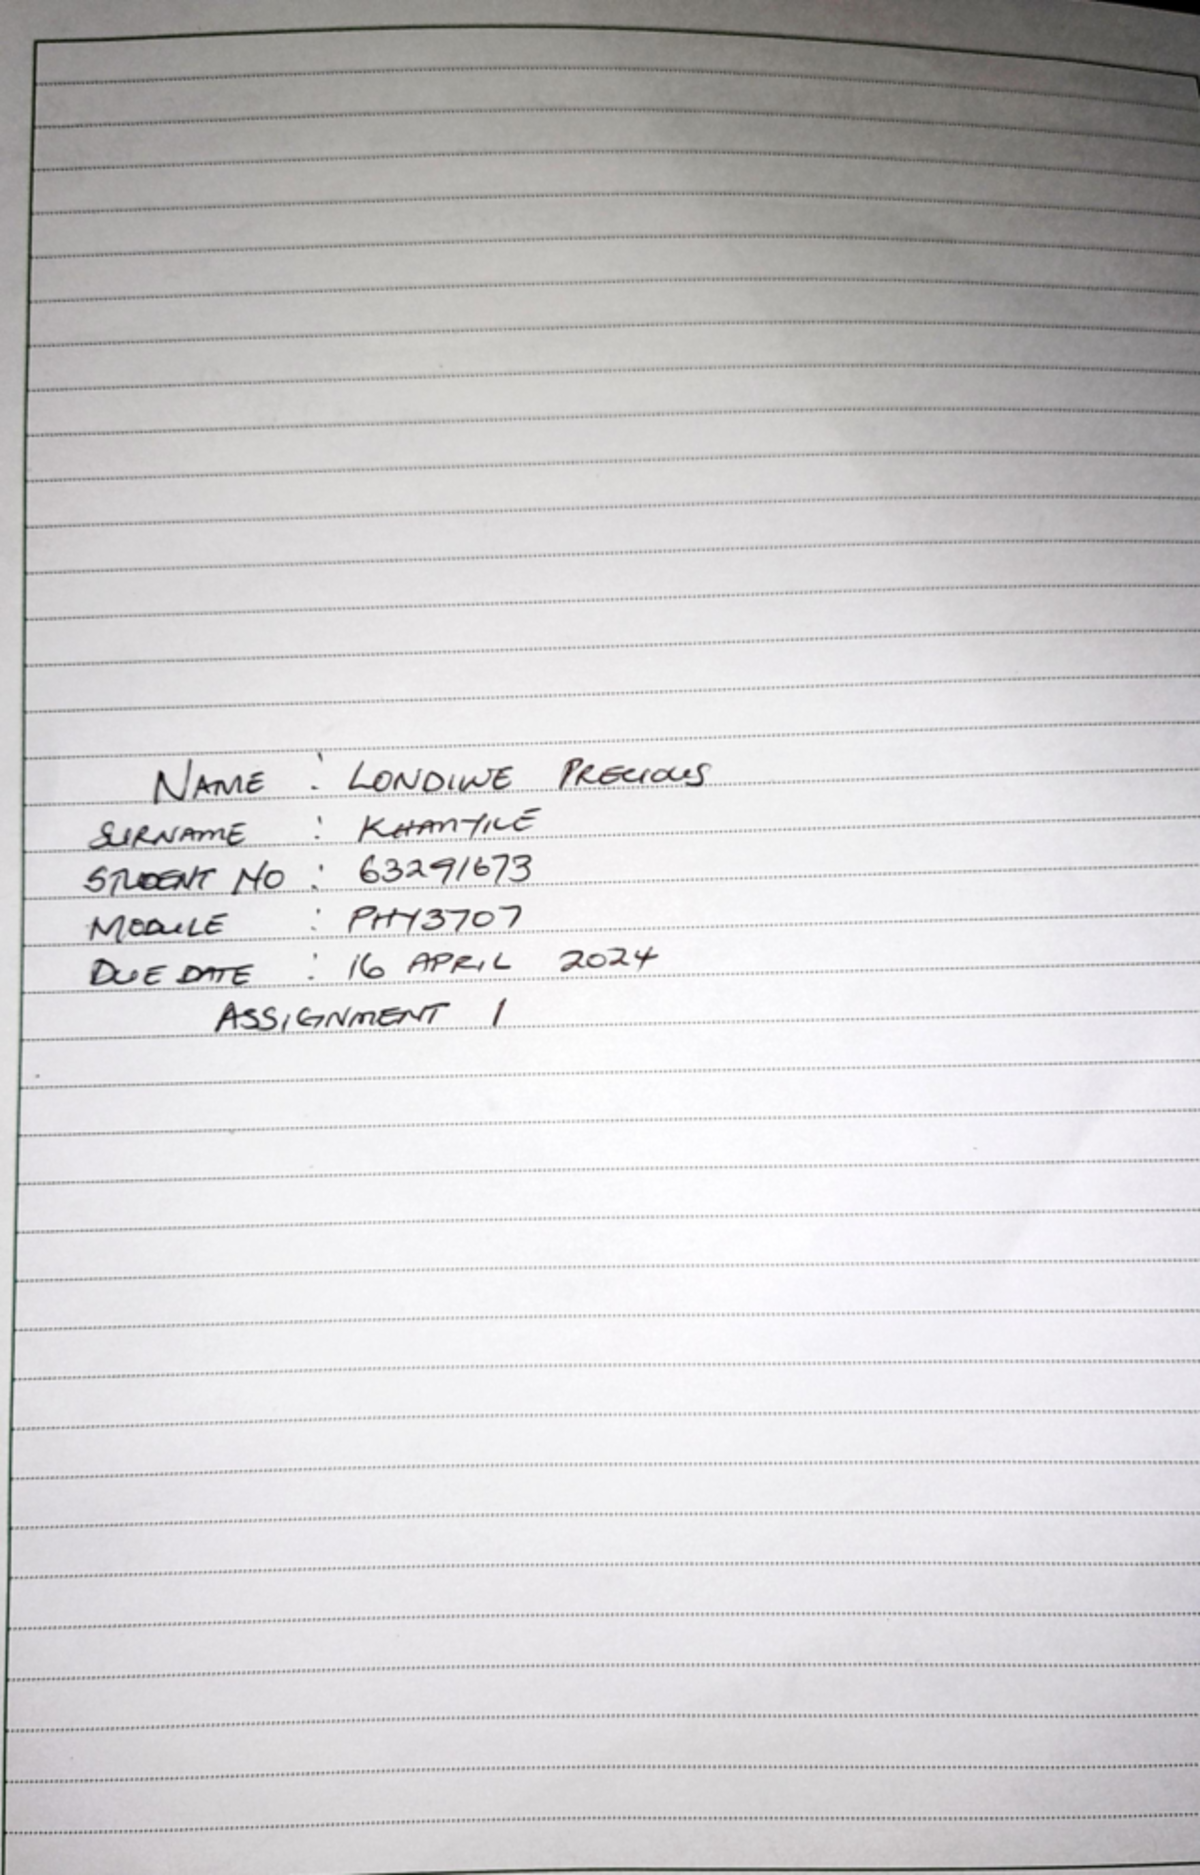 NAME : LONDIWE PRECIOUS
SURNAME : KHANYILE
STUDENT NO : 63291673
MODULE : PHY3707
DUE DATE : 16 APRIL 2024
ASSIGNMENT 1